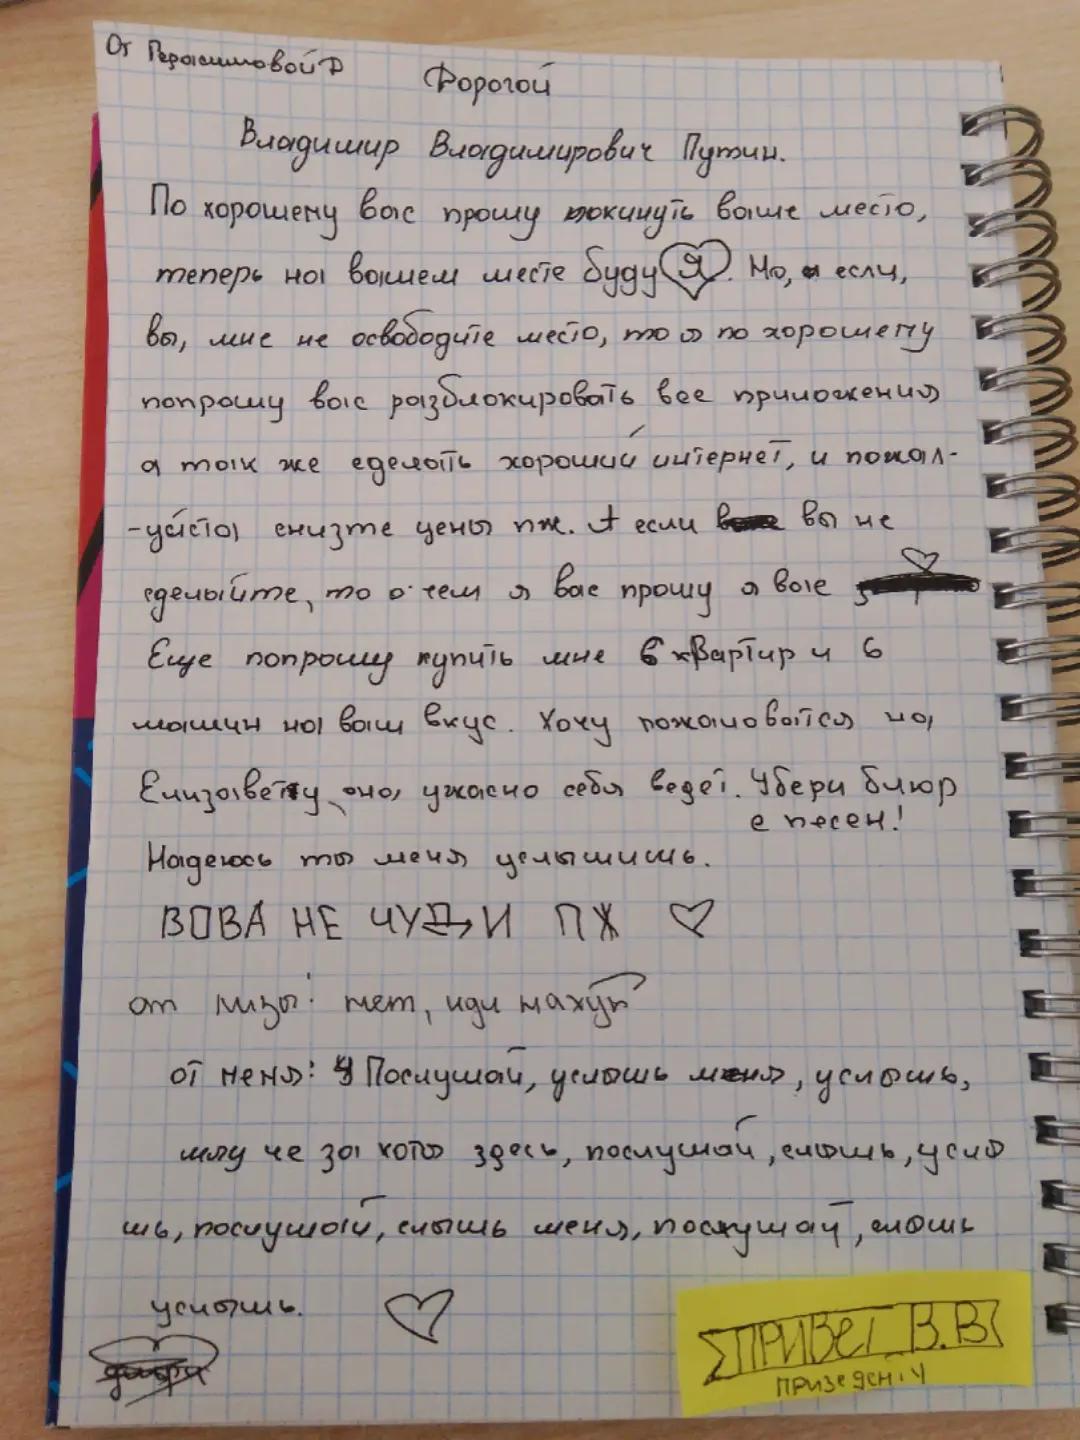 От Герасимовой Д
Дорогой
Владимир Владимирович Путин.
По хорошему вас прошу покинуть ваше место,
теперь на вашем месте буду Я. Но, а если,
вы, мне не освободите место, то я по хорошему
попрошу вас разблокировать все приложения
а так же сделать хороший интернет, и пожал-
-уйста снизте цены пж. А если вы не
сделайте, то о чем я вас прошу я вас
Еще попрошу купить мне 6 квартир и 6
машин на ваш вкус. Хочу пожаловатся на
Елизавету, она ужасно себя ведет. Убери блюр
с песен!
Надеюсь ты меня услышишь.
ВОВА НЕ ЧУДИ ПЖ
от лизы: нет, иди
от меня: Послушай, услышь меня, услышь,
че за кота здесь, послушай, слышь, услы
шь, послушай, слышь меня, послушай, слышь
услышь.
ПРИВЕТ В.В